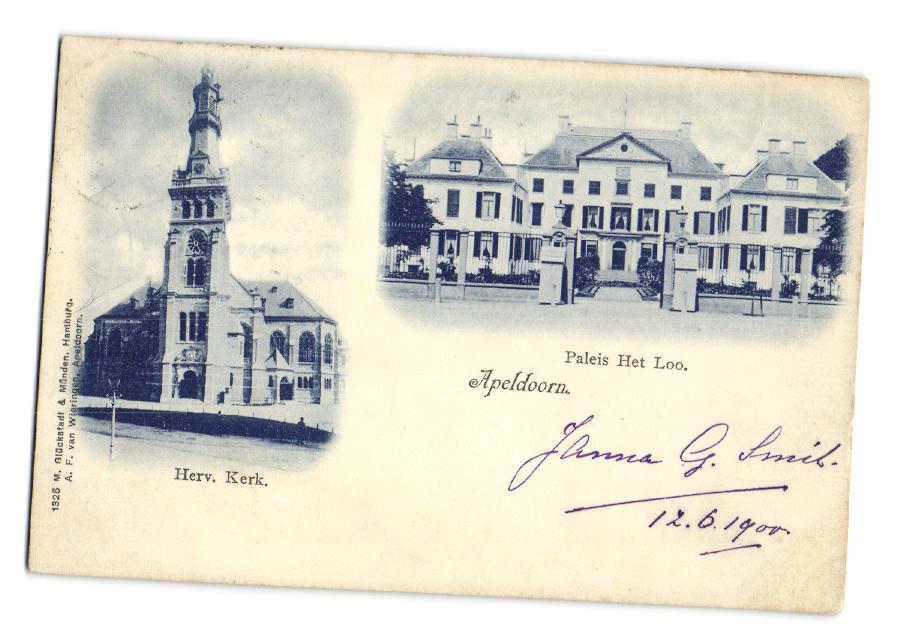 Paleis Het Loo.
Apeldoorn.
Herv. Kerk.
1325 M. Glückstadt & Münden. Hamburg.
A. F. van Wieringen, Apeldoorn.
Janna G. Smit.
12.6.1900.